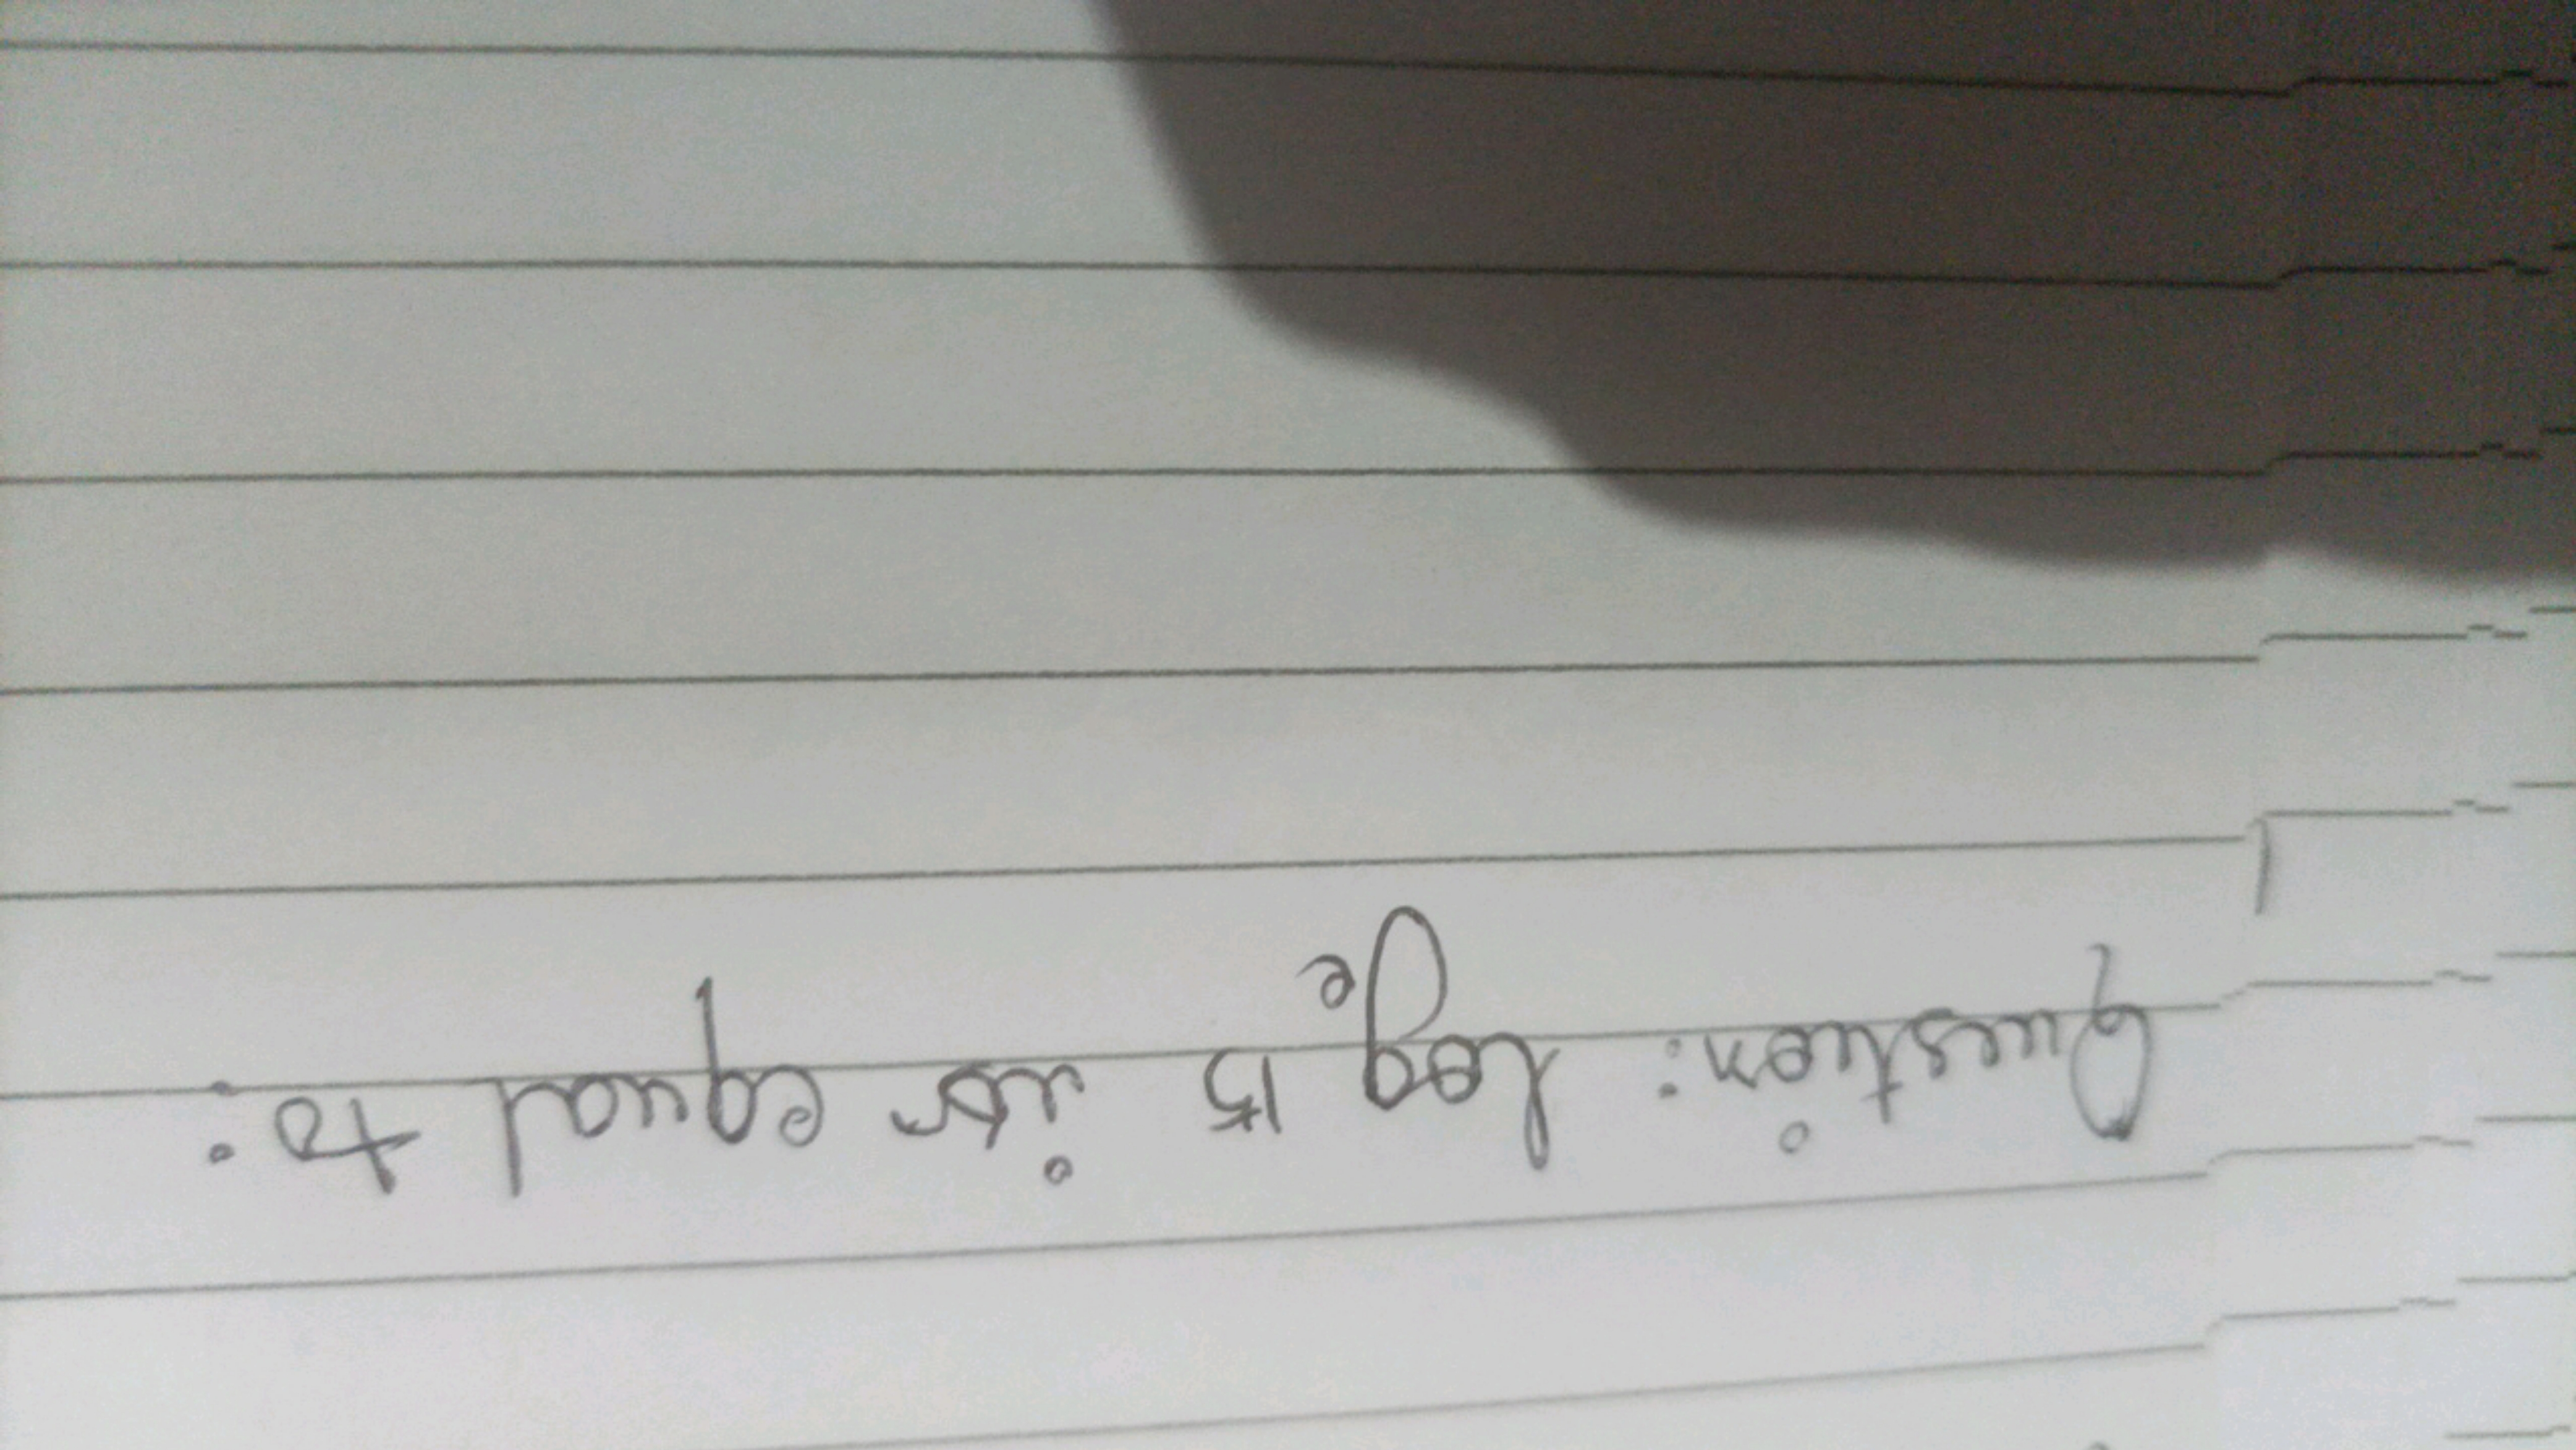 Question: log_e 15 is equal to: